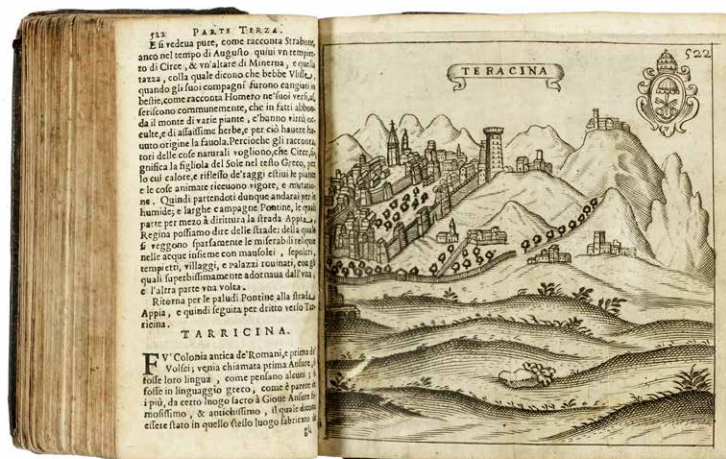 522 PARTE TERZA.
E si vedeua pure, come racconta Strabone,
anco nel tempo di Augusto quiui vn tempiet-
to di Circe, & vn'altare di Minerua, e quella
tazza, colla quale dicono che bebbe Vlisse,
quando gli suoi compagni furono cangiati in
bestie, come racconta Homero ne' suoi versi,
feriscono communemente, che in fatti abbon-
da il monte di varie piante, c'hanno virtù oc-
culte, e di assaissime herbe, e per ciò hauere ha-
uuto origine la fauola. Percioche gli racconta-
tori delle cose naturali vogliono, che Circe, si-
gnifica la figliola del Sole nel testo Greco, per
lo cui calore, e riflesso de' raggi estiui le piante
e le cose animate riceuono vigore, e mutatio-
ne. Quindi partendoti dunque andarai per le
humide, e larghe campagne Pontine, le quali
parte per mezo à dirittura la strada Appia,
Regina possiamo dire delle strade: della quale
si veggono sparsamente le miserabili reliquie
nelle acque insieme con mausolei, sepolcri,
tempietti, villaggi, e Palazzi rouinati, con gli
quali superbissimamente adornaua dall'vna,
e l'altra parte vna volta.
Ritorna per le paludi Pontine alla strada
Appia, e quindi seguita per dritto verso Tar-
ricina.
TARRICINA.
FV' Colonia antica de' Romani, e prima de'
Volsci; venia chiamata prima Ansure,
fosse loro lingua, come pensano alcuni;
fosse in linguaggio greco, come è parere di
i più, da certo luogo sacro à Gioue Ansure fa-
mosissimo, & antichissimo, il quale dicono
essere stato in quello stesso luogo fabricato
gli
TERACINA
522